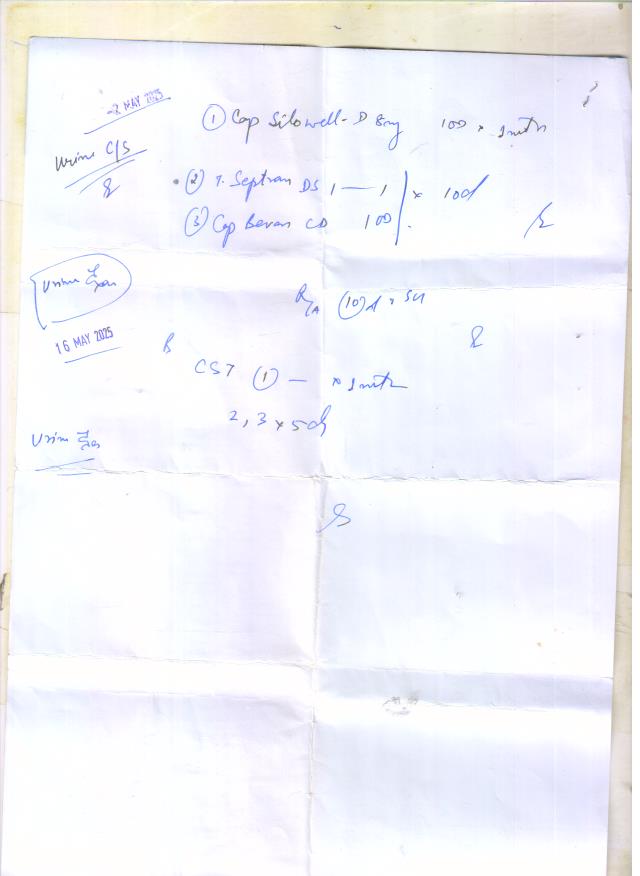 2 MAY 2025
① Cap Silowell-D 8mg 100 × 1 mth
Urine C/S
② T. Septran DS 1 — 1 × 10d
③ Cap Bevan CD 100
Urine
R/A ⑩d
16 MAY 2025
CST ① — × 1 mth
2, 3 × 5d
Urine